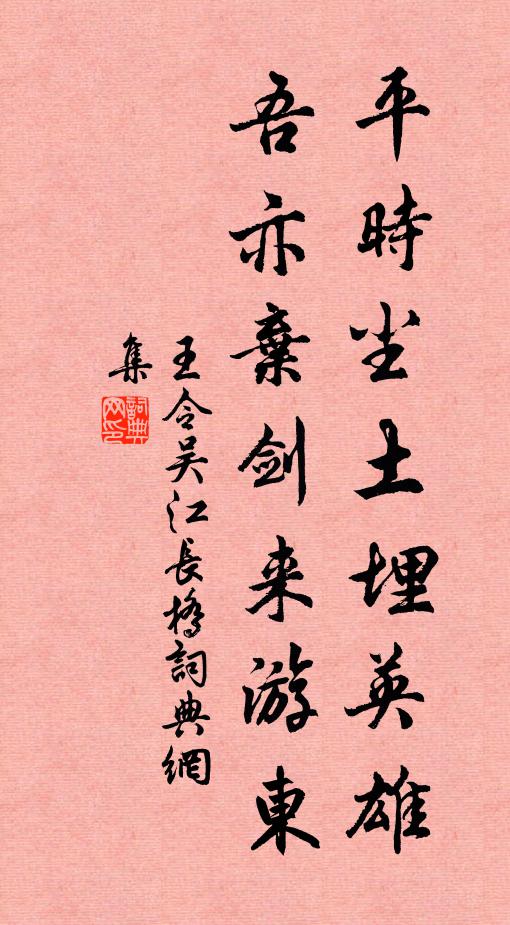 平時尘土埋英雄
吾亦棄劍来游東
王令吴江長橋詞典網
集
詞典网印